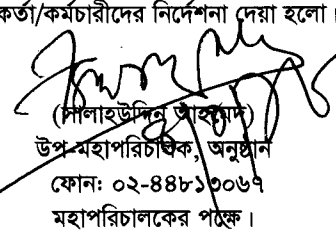 কর্তা/কর্মচারীদের নির্দেশনা দেয়া হলো।
(সালাহউদ্দিন আহমেদ)
উপ-মহাপরিচালক, অনুষ্ঠান
ফোন: ০২-৪৪৮১৩০৬৭
মহাপরিচালকের পক্ষে।